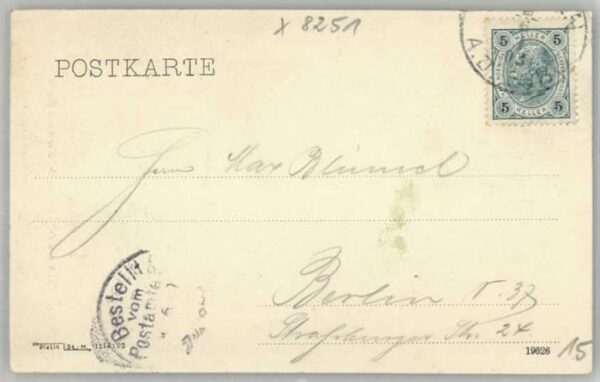 x 8251
POSTKARTE
5 HELLER 5
5 HELLER 5
Herrn Max Blümel
Bestellt
vom
Postamte
Berlin N. 37
Straßburger Str. 24
15
19626